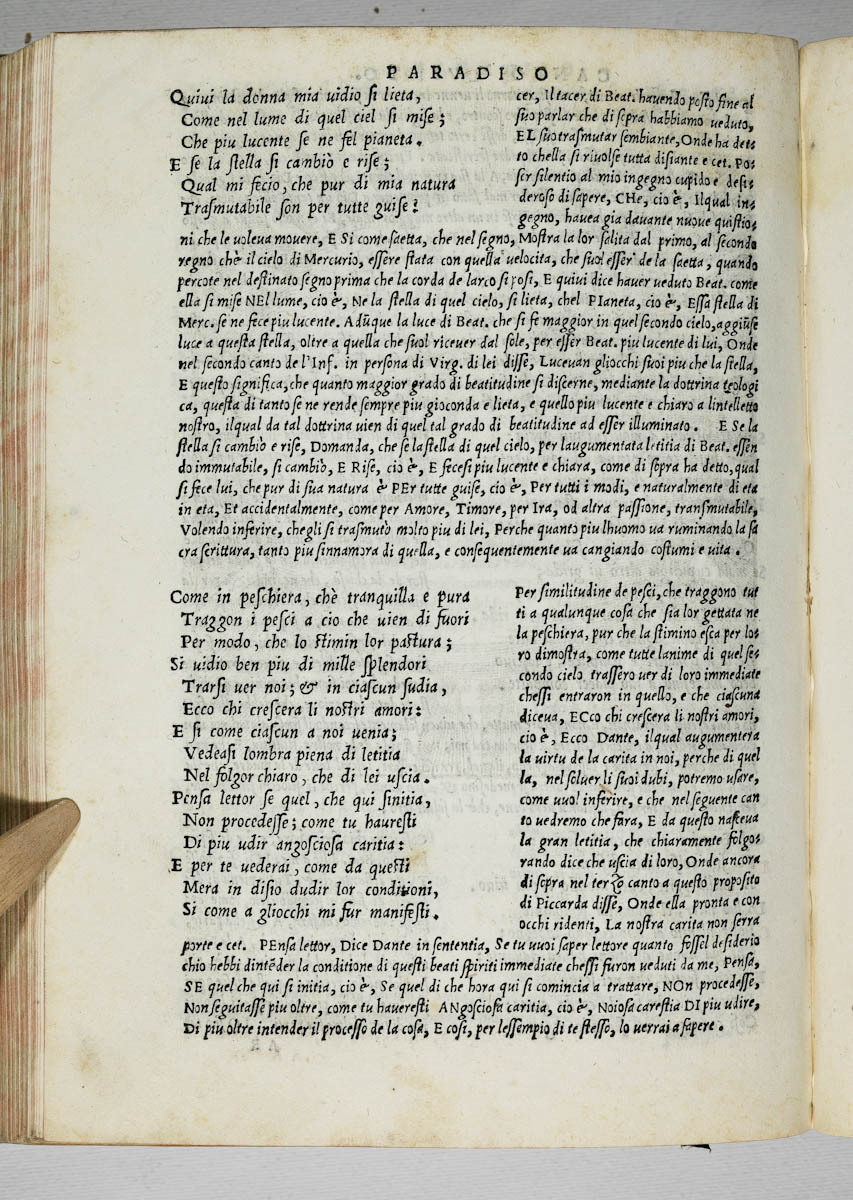 PARADISO
Quiui la donna mia uidio si lieta,
Come nel lume di quel ciel si mise;
Che piu lucente se ne fel pianeta.
E se la stella si cambiò e rise;
Qual mi fecio, che pur di mia natura
Trasmutabile son per tutte guise?
cer, Il tacer di Beat. hauendo posto fine al
suo parlar che di sopra habbiamo ueduto,
EL suo trasmutar sembiante, Onde ha det
to chella si riuolse tutta disiante e cet. Po
ser silentio al mio ingegno cupido e desi
deroso di sapere, CHe, cio è, Ilqual in
gegno, hauea gia dauante nuoue quistio
ni che le uoleua mouere, E SI come saetta, che nel segno, Mostra la lor salita dal primo, al secondo
regno chè il cielo di Mercurio, essere stata con quella uelocita, che suol esser de la saetta, quando
percote nel destinato segno prima che la corda de larco si posi, E quiui dice hauer ueduto Beat. come
ella si mise NEl lume, cio è, Ne la stella di quel cielo, si lieta, chel PIaneta, cio è, Essa stella di
Merc. se ne fece piu lucente. Adūque la luce di Beat. che si fe maggior in quel secondo cielo, aggiūse
luce a questa stella, oltre a quella che suol riceuer dal sole, per esser Beat. piu lucente di lui, Onde
nel secondo canto de l'Inf. in persona di Virg. di lei disse, Luceuan gliocchi suoi piu che la stella,
E questo significa, che quanto maggior grado di beatitudine si discerne, mediante la dottrina teologi
ca, questa di tanto se ne rende sempre piu gioconda e lieta, e quello piu lucente e chiaro a lintelletto
nostro, ilqual da tal dottrina uien di quel tal grado di beatitudine ad esser illuminato. E Se la
stella si cambiò e rise, Domanda, che se la stella di quel cielo, per laugumentata letitia di Beat. essen
do immutabile, si cambiò, E Rise, cio è, E fecesi piu lucente e chiara, come di sopra ha detto, qual
si fece lui, che pur di sua natura è PEr tutte guise, cio è, Per tutti i modi, e naturalmente di eta
in eta, Et accidentalmente, come per Amore, Timore, per Ira, od altra passione, transmutabile,
Volendo inferire, chegli si trasmutò molto piu di lei, Perche quanto piu lhuomo ua ruminando la sa
cra scrittura, tanto piu sinnamora di quella, e consequentemente ua cangiando costumi e uita.
Come in peschiera, chè tranquilla e pura
Traggon i pesci a cio che uien di fuori
Per modo, che lo stimin lor pastura;
Si uidio ben piu di mille splendori
Trarsi uer noi; & in ciascun sudia,
Ecco chi crescera li nostri amori:
E si come ciascun a noi uenia;
Vedeasi lombra piena di letitia
Nel folgor chiaro, che di lei uscia.
Pensa lettor se quel, che qui sinitia,
Non procedesse; come tu hauresti
Di piu udir angosciosa caritia:
E per te uederai, come da questi
Mera in disio dudir lor conditioni,
Si come a gliocchi mi fur manifesti.
Per similitudine de pesci, che traggono tut
ti a qualunque cosa che sia lor gettata ne
la peschiera, pur che la stimino esca per lo
ro dimostra, come tutte lanime di quel se
condo cielo trassero uer di loro immediate
chessi entraron in quello, e che ciascuna
diceua, ECco chi crescera li nostri amori,
cio è, Ecco Dante, ilqual augumentera
la uirtu de la carita in noi, perche di quel
la, nel soluer li suoi dubi, potremo usare,
come uuol inferire, e che nel seguente can
to uedremo che fara, E da questo nasceua
la gran letitia, che chiaramente folgo
rando dice che uscia di loro, Onde ancora
di sopra nel terzo canto a questo proposito
di Piccarda disse, Onde ella pronta e con
occhi ridenti, La nostra carita non serra
porte e cet. PEnsa lettor, Dice Dante in sententia, Se tu uuoi saper lettore quanto fossel desiderio
chio hebbi dintēder la conditione di questi beati spiriti immediate chessi furon ueduti da me, Pensa,
SE quel che qui si initia, cio è, Se quel di che hora qui si comincia a trattare, NOn procedesse,
Non seguitasse piu oltre, come tu haueresti ANgosciosa caritia, cio è, Noiosa carestia DI piu udire,
Di piu oltre intender il processo de la cosa, E cosi, per lessempio di te stesso, lo uerrai a sapere.